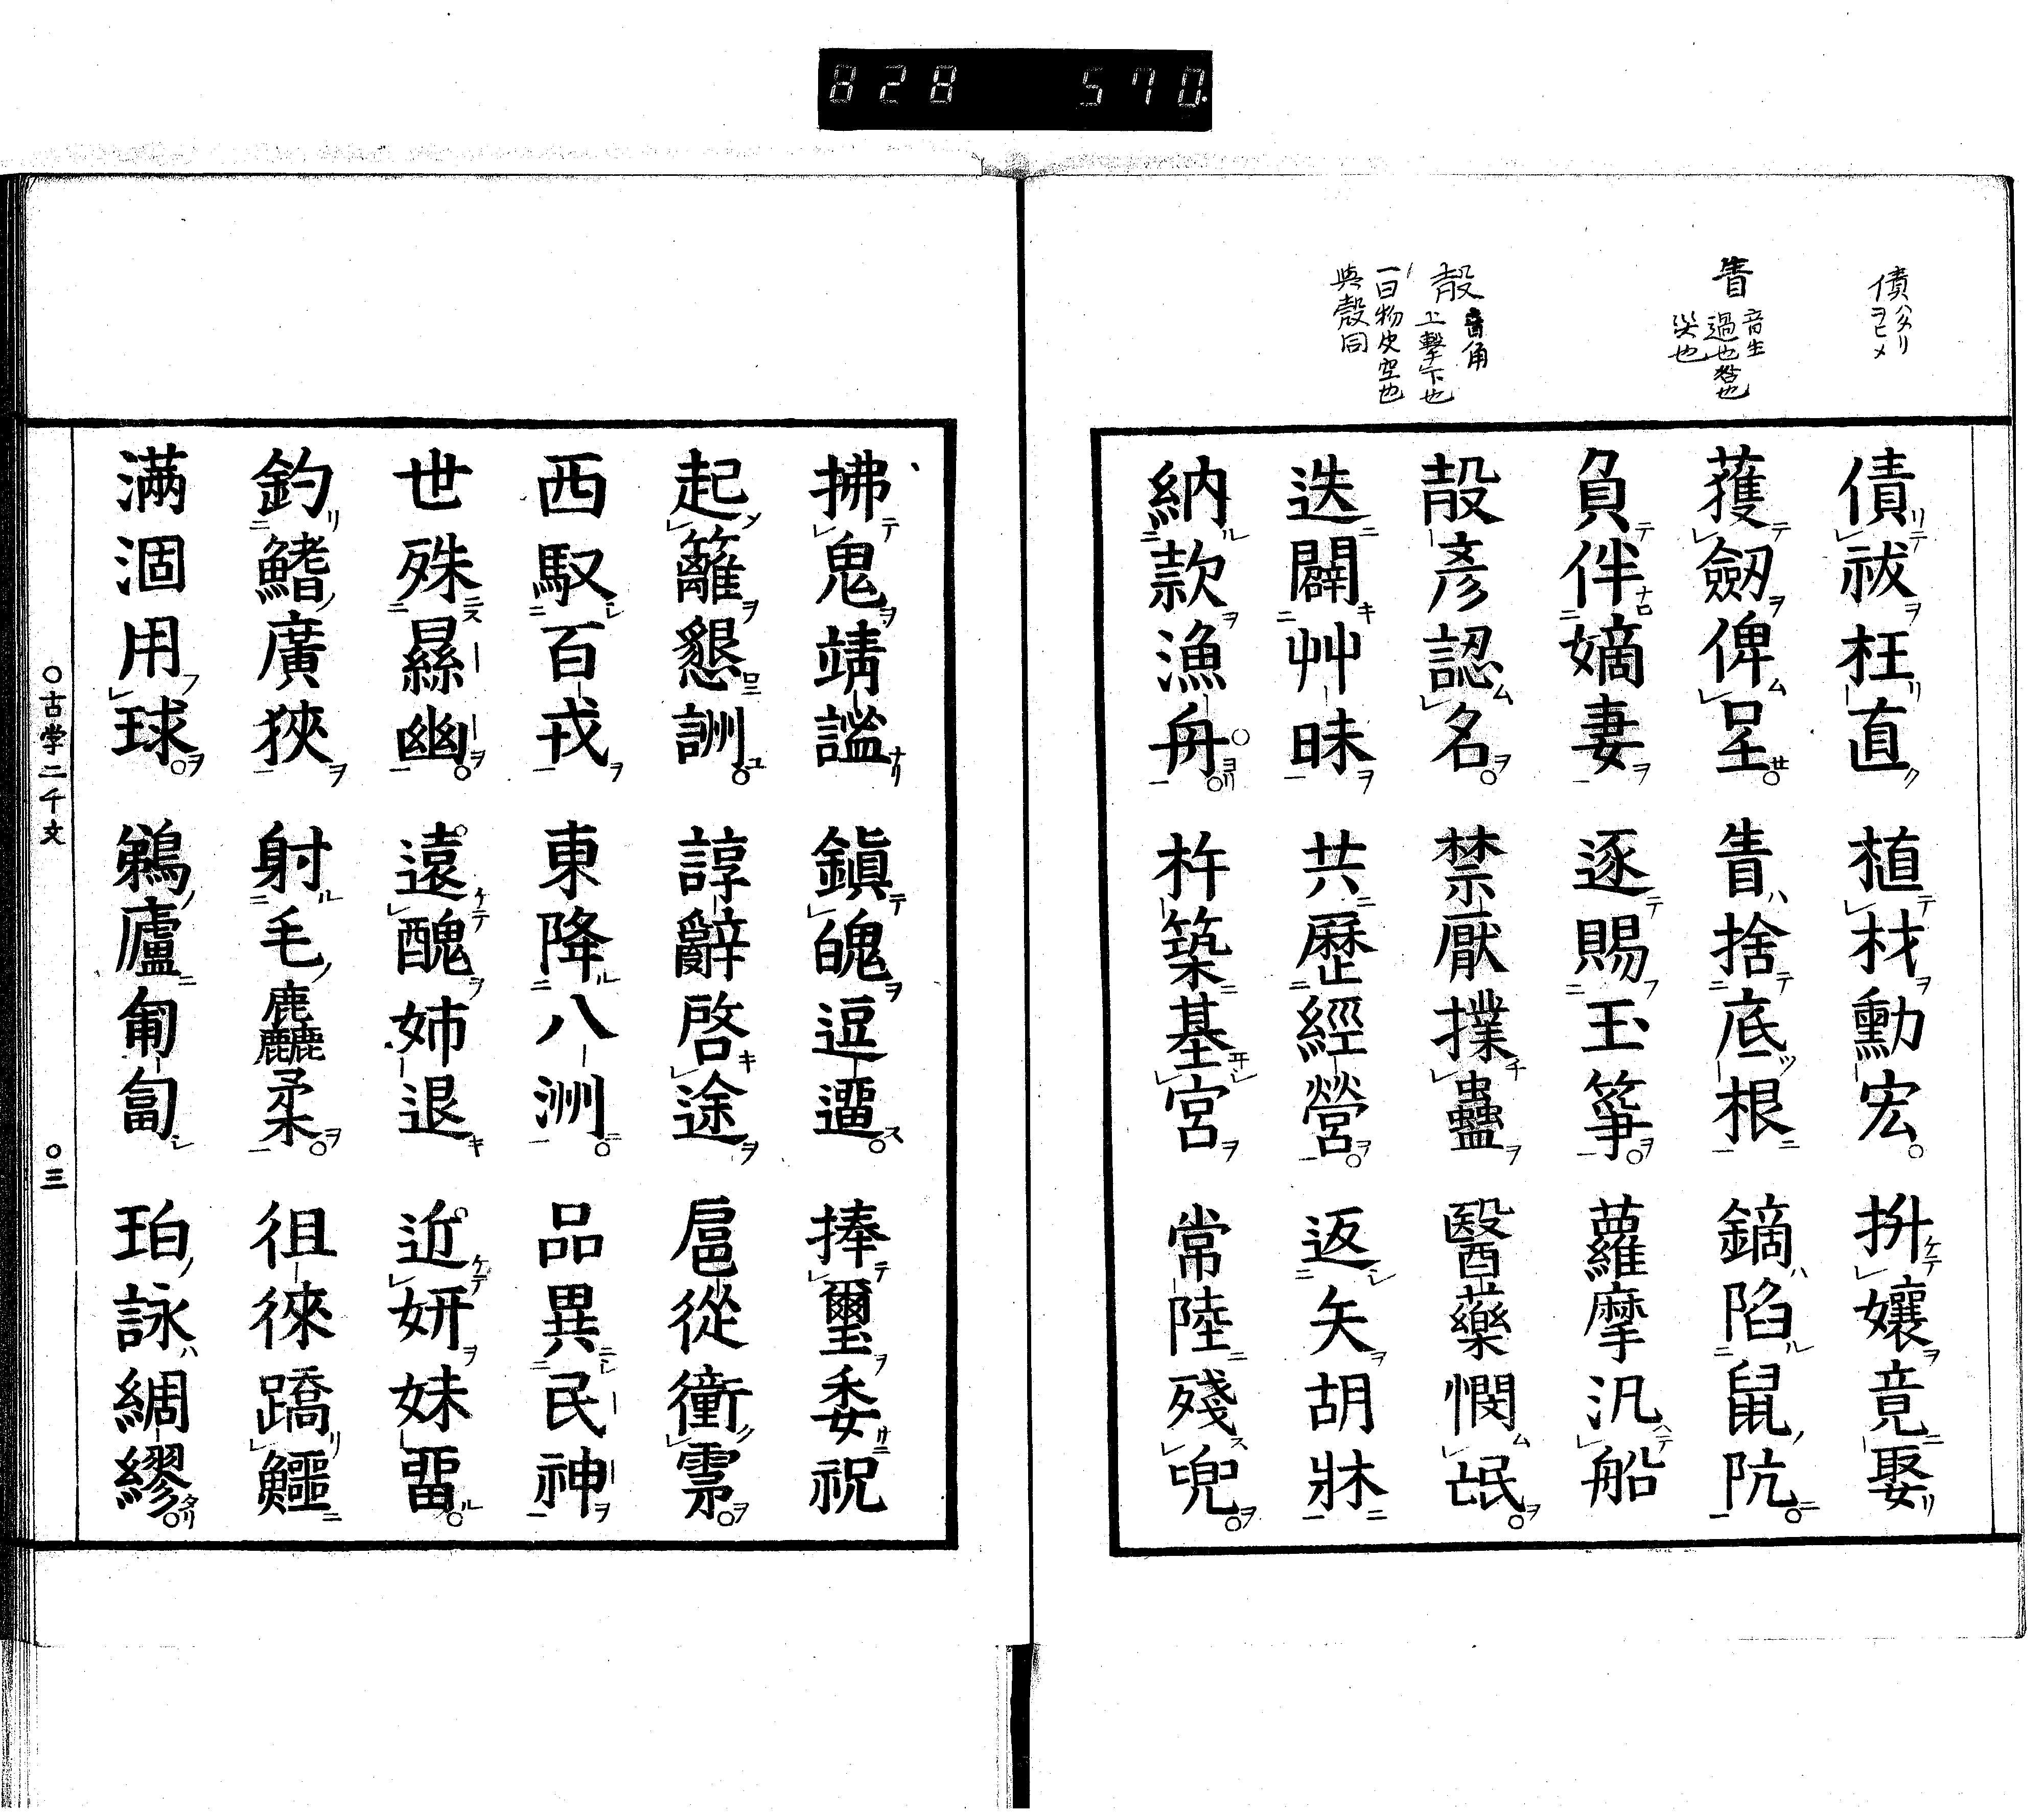 828 570
債 ハタリ ヲヒメ
眚 音生 過也 災也
㱿 音角 上擊下也
一曰物皮空也
與殼同
債祓枉直 植材勳宏 拚孃竟娶
獲劔俾呈 眚捨底根 鏑陷鼠阬
負伴嫡妻 逐賜玉筝 蘿摩汎船
㱿彦認名 禁厭撲蠱 醫藥憫氓
迭闢艸昧 共歷經營 返矢胡牀
納款漁舟 杵築基宮 常陸殘兜
拂鬼靖謐 鎭魄逗遛 捧璽委祝
起籬懇詶 諄辭啓途 扈從衝雲
西馭百戎 東降八洲 品異民神
世殊㬎幽 遠醜姉退 近妍妹畱
釣鰭廣狹 射毛麤柔 徂徠蹻鱷
滿涸用球 鵜廬匍匐 珀詠綢繆
〇古学二千文 〇三